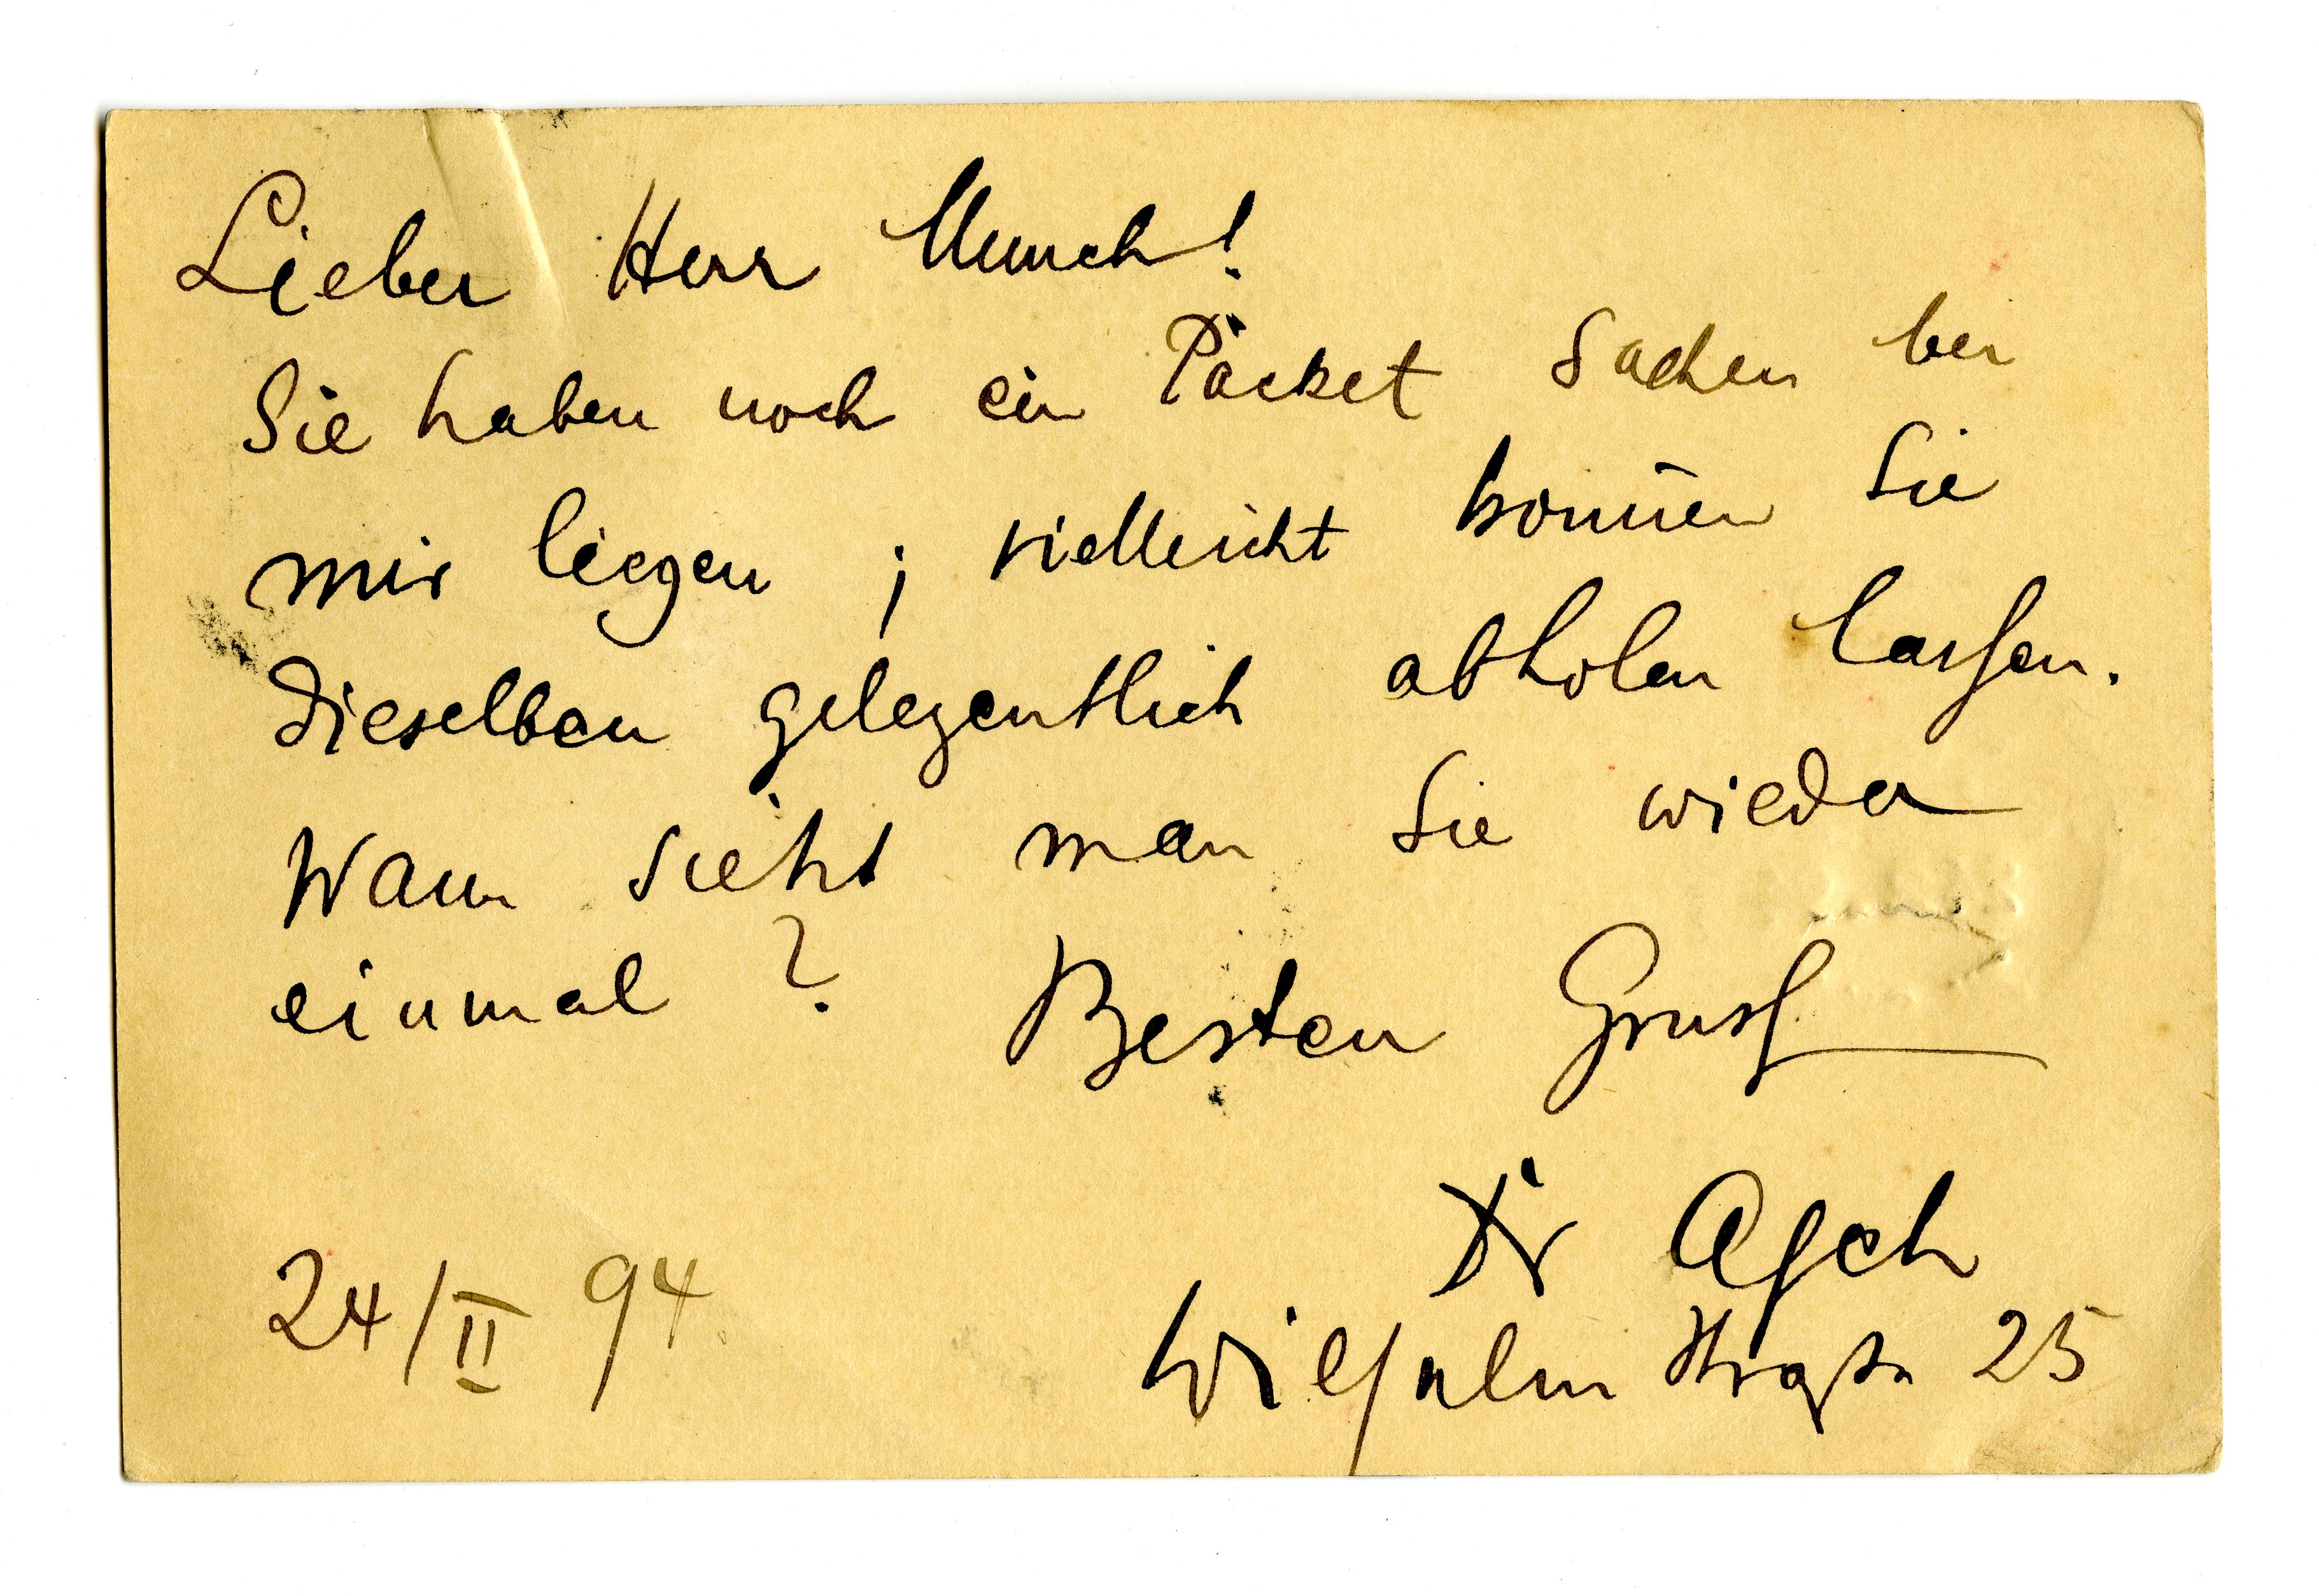 Lieber Herr Munch!
Sie haben noch ein Päcket Sachen bei
mir liegen ; vielleicht können Sie
dieselben gelegentlich abholen lassen.
Wann sieht man Sie wieder
einmal ? Besten Gruß
Dr Asch
24/II 94 Wilhelmstraße 25